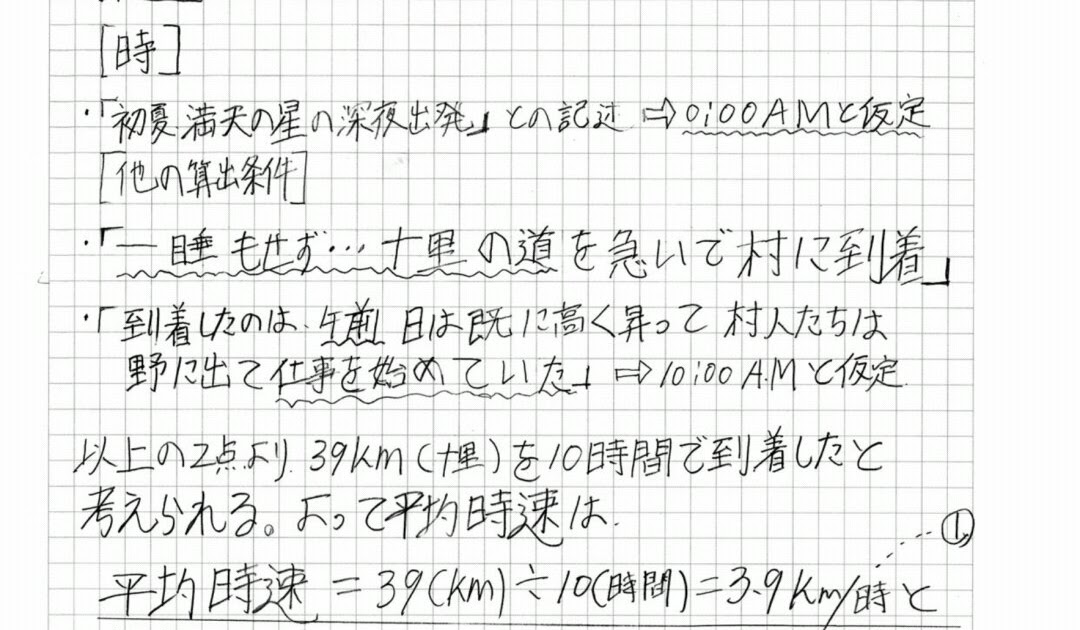 [時]
・「初夏 満天の星の深夜出発」との記述 ⇨0:00AMと仮定
[他の算出条件]
・「一睡もせず…十里の道を急いで村に到着」
・「到着したのは、午前 日は既に高く昇って 村人たちは
野に出て仕事を始めていた」⇨10:00A.Mと仮定
以上の2点より 39km(十里)を10時間で到着したと
考えられる。よって平均時速は.
①
平均時速 = 39(km)÷10(時間)=3.9km/時と